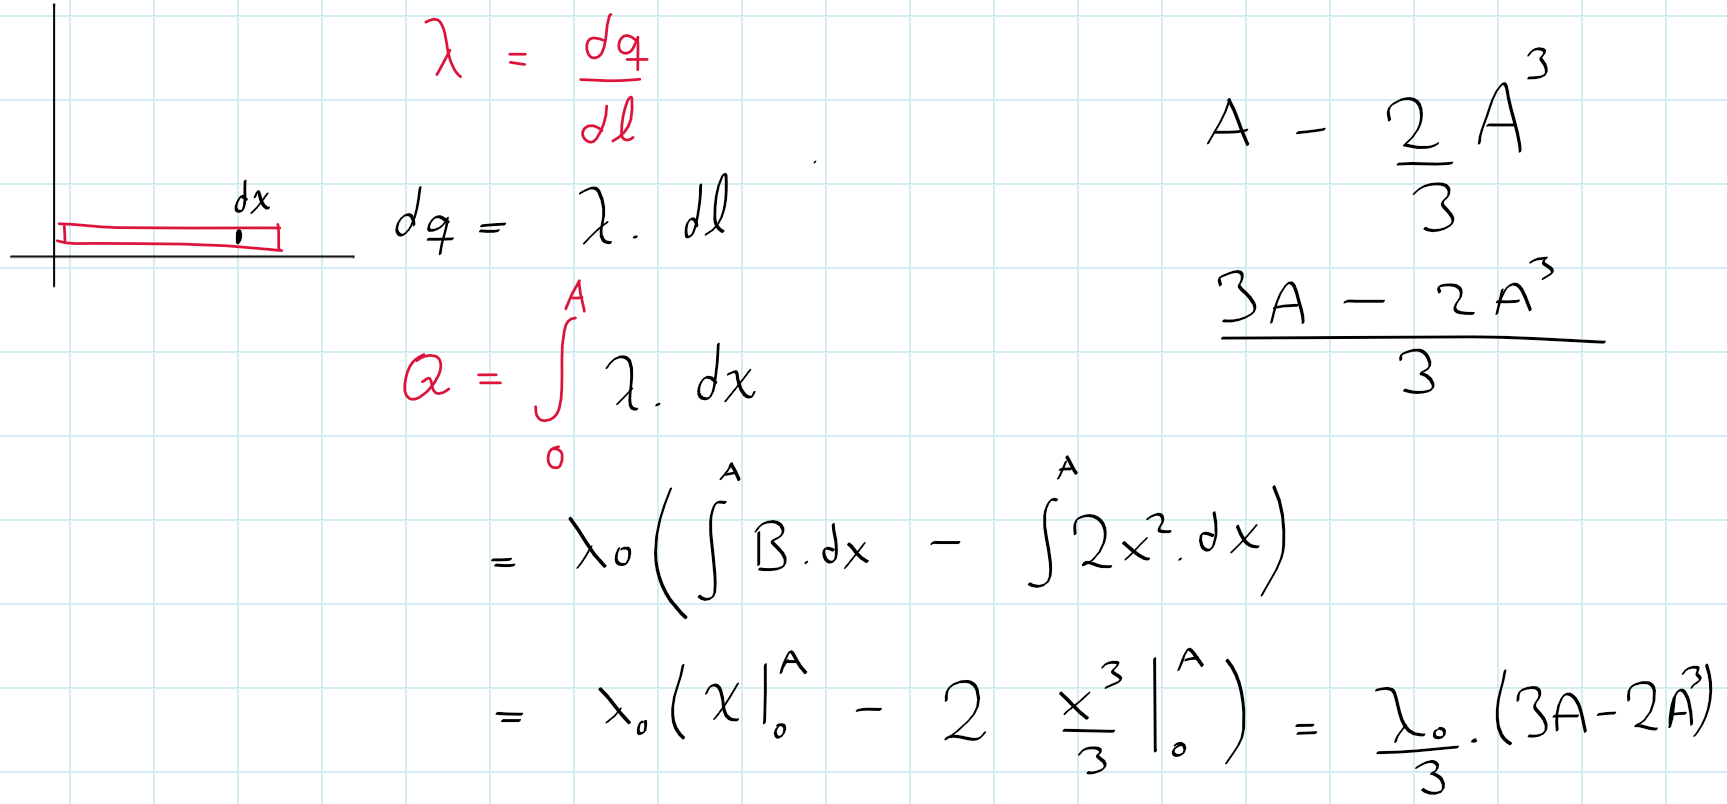 λ = dq/dl
dx
dq = λ. dl
Q = ∫₀ᴬ λ. dx
= λ₀(∫ᴬ B.dx − ∫ᴬ 2x².dx)
= λ₀(x|₀ᴬ − 2 x³/3 |₀ᴬ) = λ₀/3 .(3A−2A³)
A − 2/3 A³
(3A − 2A³)/3